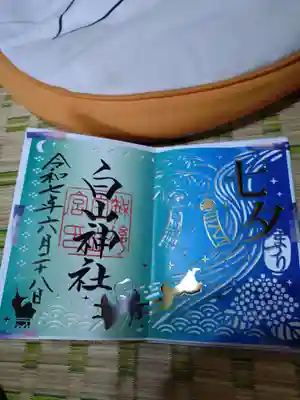 七夕
まつり
白山神社
令和七年六月二十八日